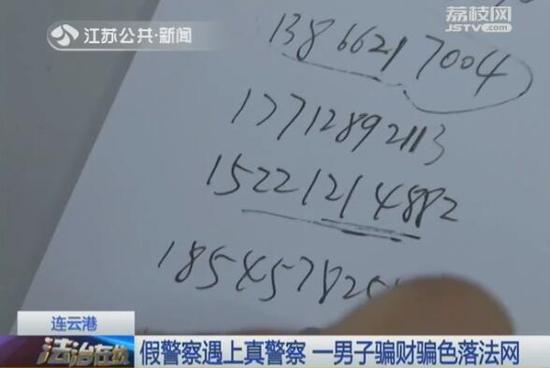 江苏公共·新闻
荔枝网
JSTV.COM
13866217004
17712892113
15221214882
18545782
连云港
法治在线
假警察遇上真警察 一男子骗财骗色落法网